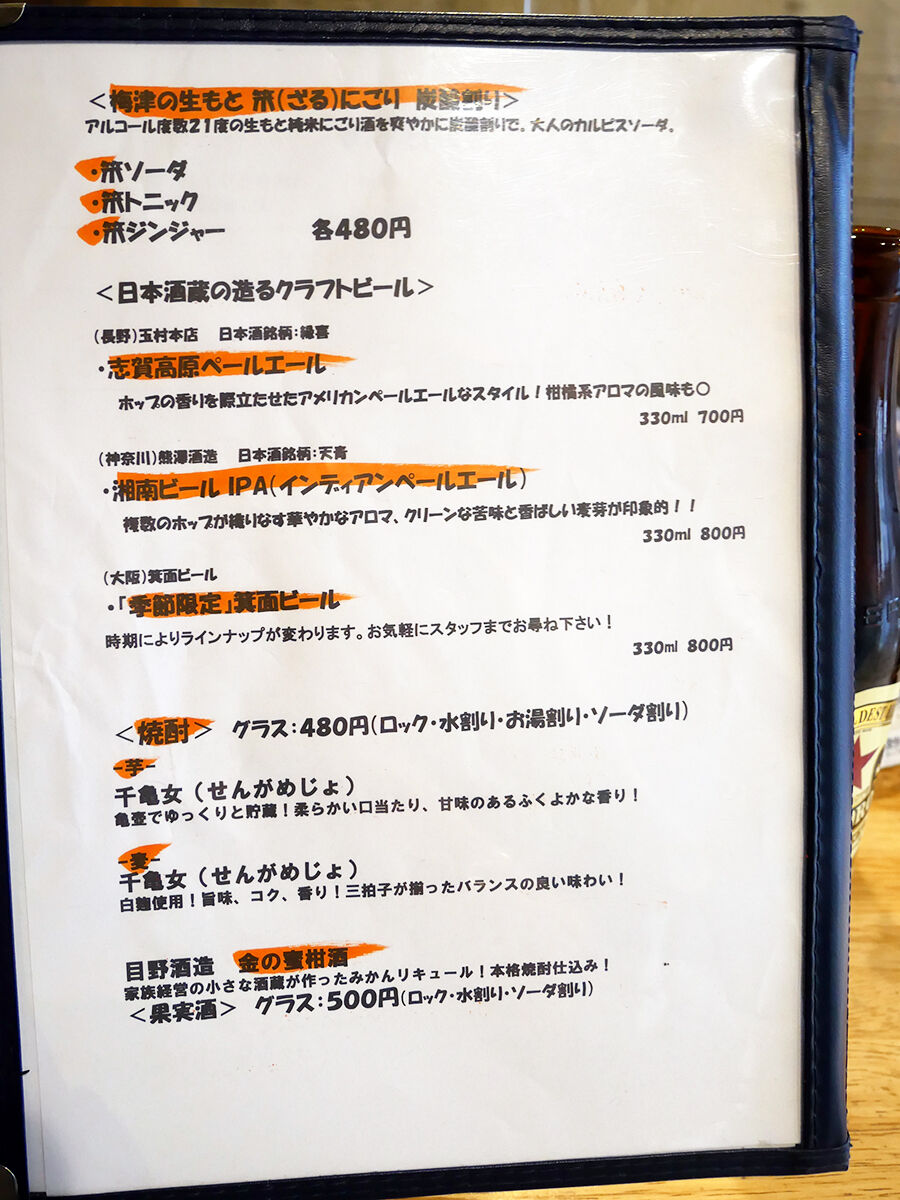 ＜梅津の生もと 笊(ざる)にごり 炭酸割り＞
アルコール度数２１度の生もと純米にごり酒を爽やかに炭酸割りで。大人のカルピスソーダ。
・笊ソーダ
・笊トニック
・笊ジンジャー 各480円
＜日本酒蔵の造るクラフトビール＞
(長野)玉村本店 日本酒銘柄：縁喜
・志賀高原ペールエール
ホップの香りを際立たせたアメリカンペールエールなスタイル！柑橘系アロマの風味も〇
330ml 700円
(神奈川)熊澤酒造 日本酒銘柄：天青
・湘南ビール IPA(インディアンペールエール)
複数のホップが織りなす華やかなアロマ、クリーンな苦味と香ばしい麦芽が印象的！！
330ml 800円
(大阪)箕面ビール
・「季節限定」箕面ビール
時期によりラインナップが変わります。お気軽にスタッフまでお尋ね下さい！
330ml 800円
＜焼酎＞ グラス：480円(ロック・水割り・お湯割り・ソーダ割り)
-芋-
千亀女（せんがめじょ）
亀壺でゆっくりと貯蔵！柔らかい口当たり、甘味のあるふくよかな香り！
-麦-
千亀女（せんがめじょ）
白麹使用！旨味、コク、香り！三拍子が揃ったバランスの良い味わい！
目野酒造 金の蜜柑酒
家族経営の小さな酒蔵が作ったみかんリキュール！本格焼酎仕込み！
＜果実酒＞ グラス：500円(ロック・水割り・ソーダ割り)